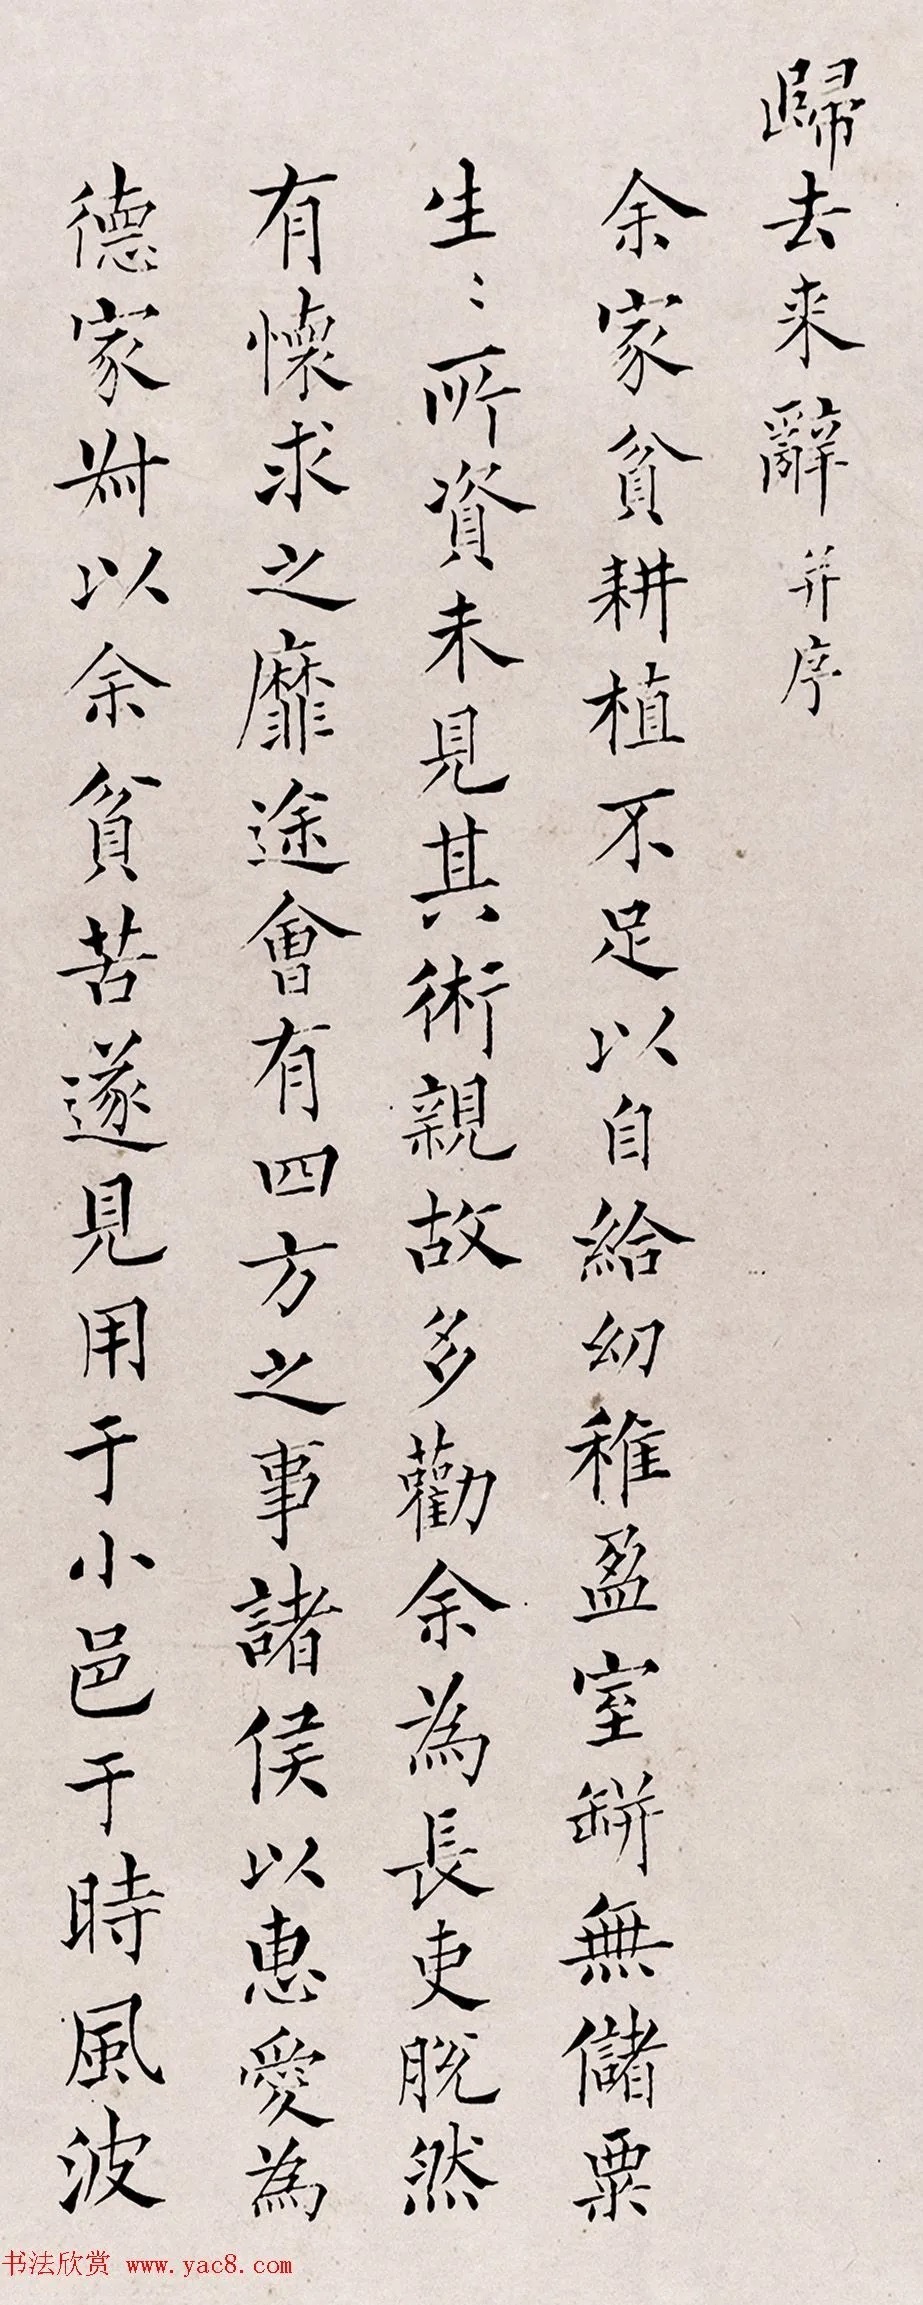 歸去来辭并序
余家貧耕植不足以自給幼稚盈室缾無儲粟
生〻所資未見其術親故多勸余為長吏脫然
有懷求之靡途會有四方之事諸侯以惠愛為
德家叔以余貧苦遂見用于小邑于時風波
书法欣赏 www.yac8.com